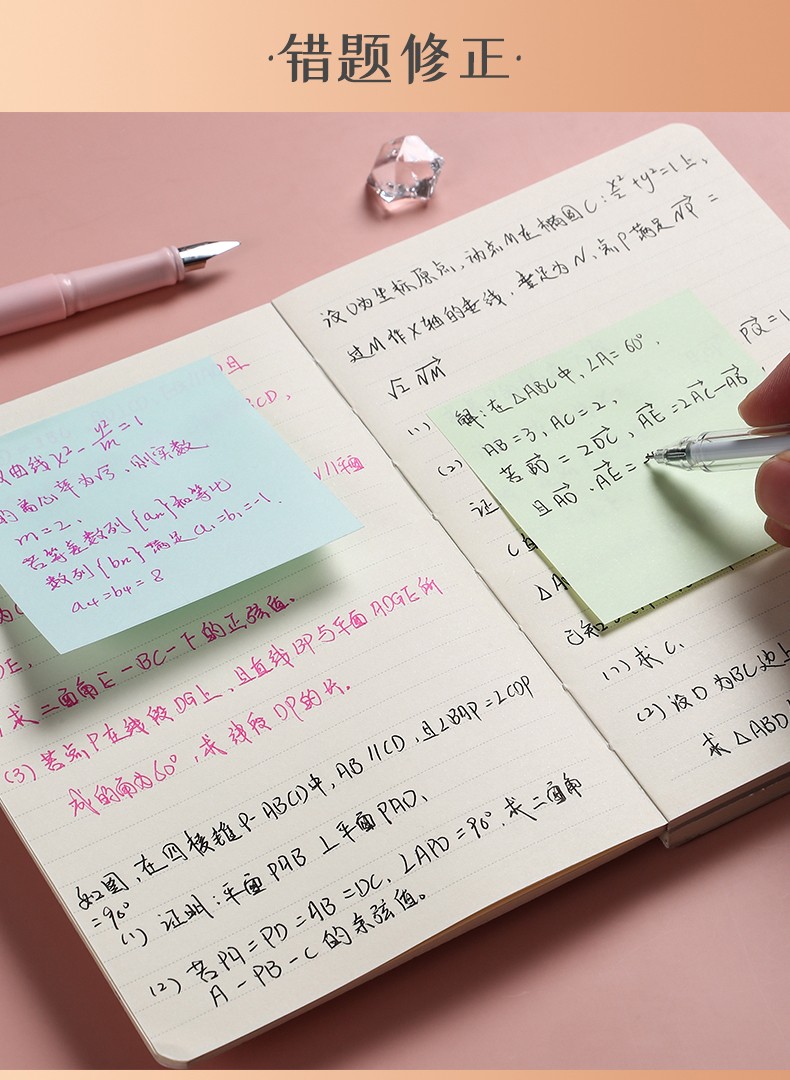 ·错题修正·
双曲线x²-y²/m=1
的离心率为√5,则实数
m=2,
若等差数列{an}和等比
数列{bn}满足a₁=b₁=-1,
a4=b4=8
求二面角E-BC-F的正弦值。
(3)若点P在线段DG上,且直线BP与平面ADGE所
成的角为60°,求线段DP的长.
如图,在四棱锥P-ABCD中,AB//CD,且∠BAP=∠CDP
=90°
(1)证明:平面PAB⊥平面PAD.
(2)若PA=PD=AB=DC,∠APD=90°,求二面角
A-PB-C的余弦值。
设O为坐标原点,动点M在椭圆C:x²/2+y²=1上,
过M作X轴的垂线,垂足为N,点P满足NP=
√2NM
(1)
(2)
证
解:在△ABC中,∠A=60°,
AB=3,AC=2,
若BD=2DC,AE=2AC-AB,
且AD、AE=
PQ=1
(1)求C.
(2)设D为BC边上
求△ABD